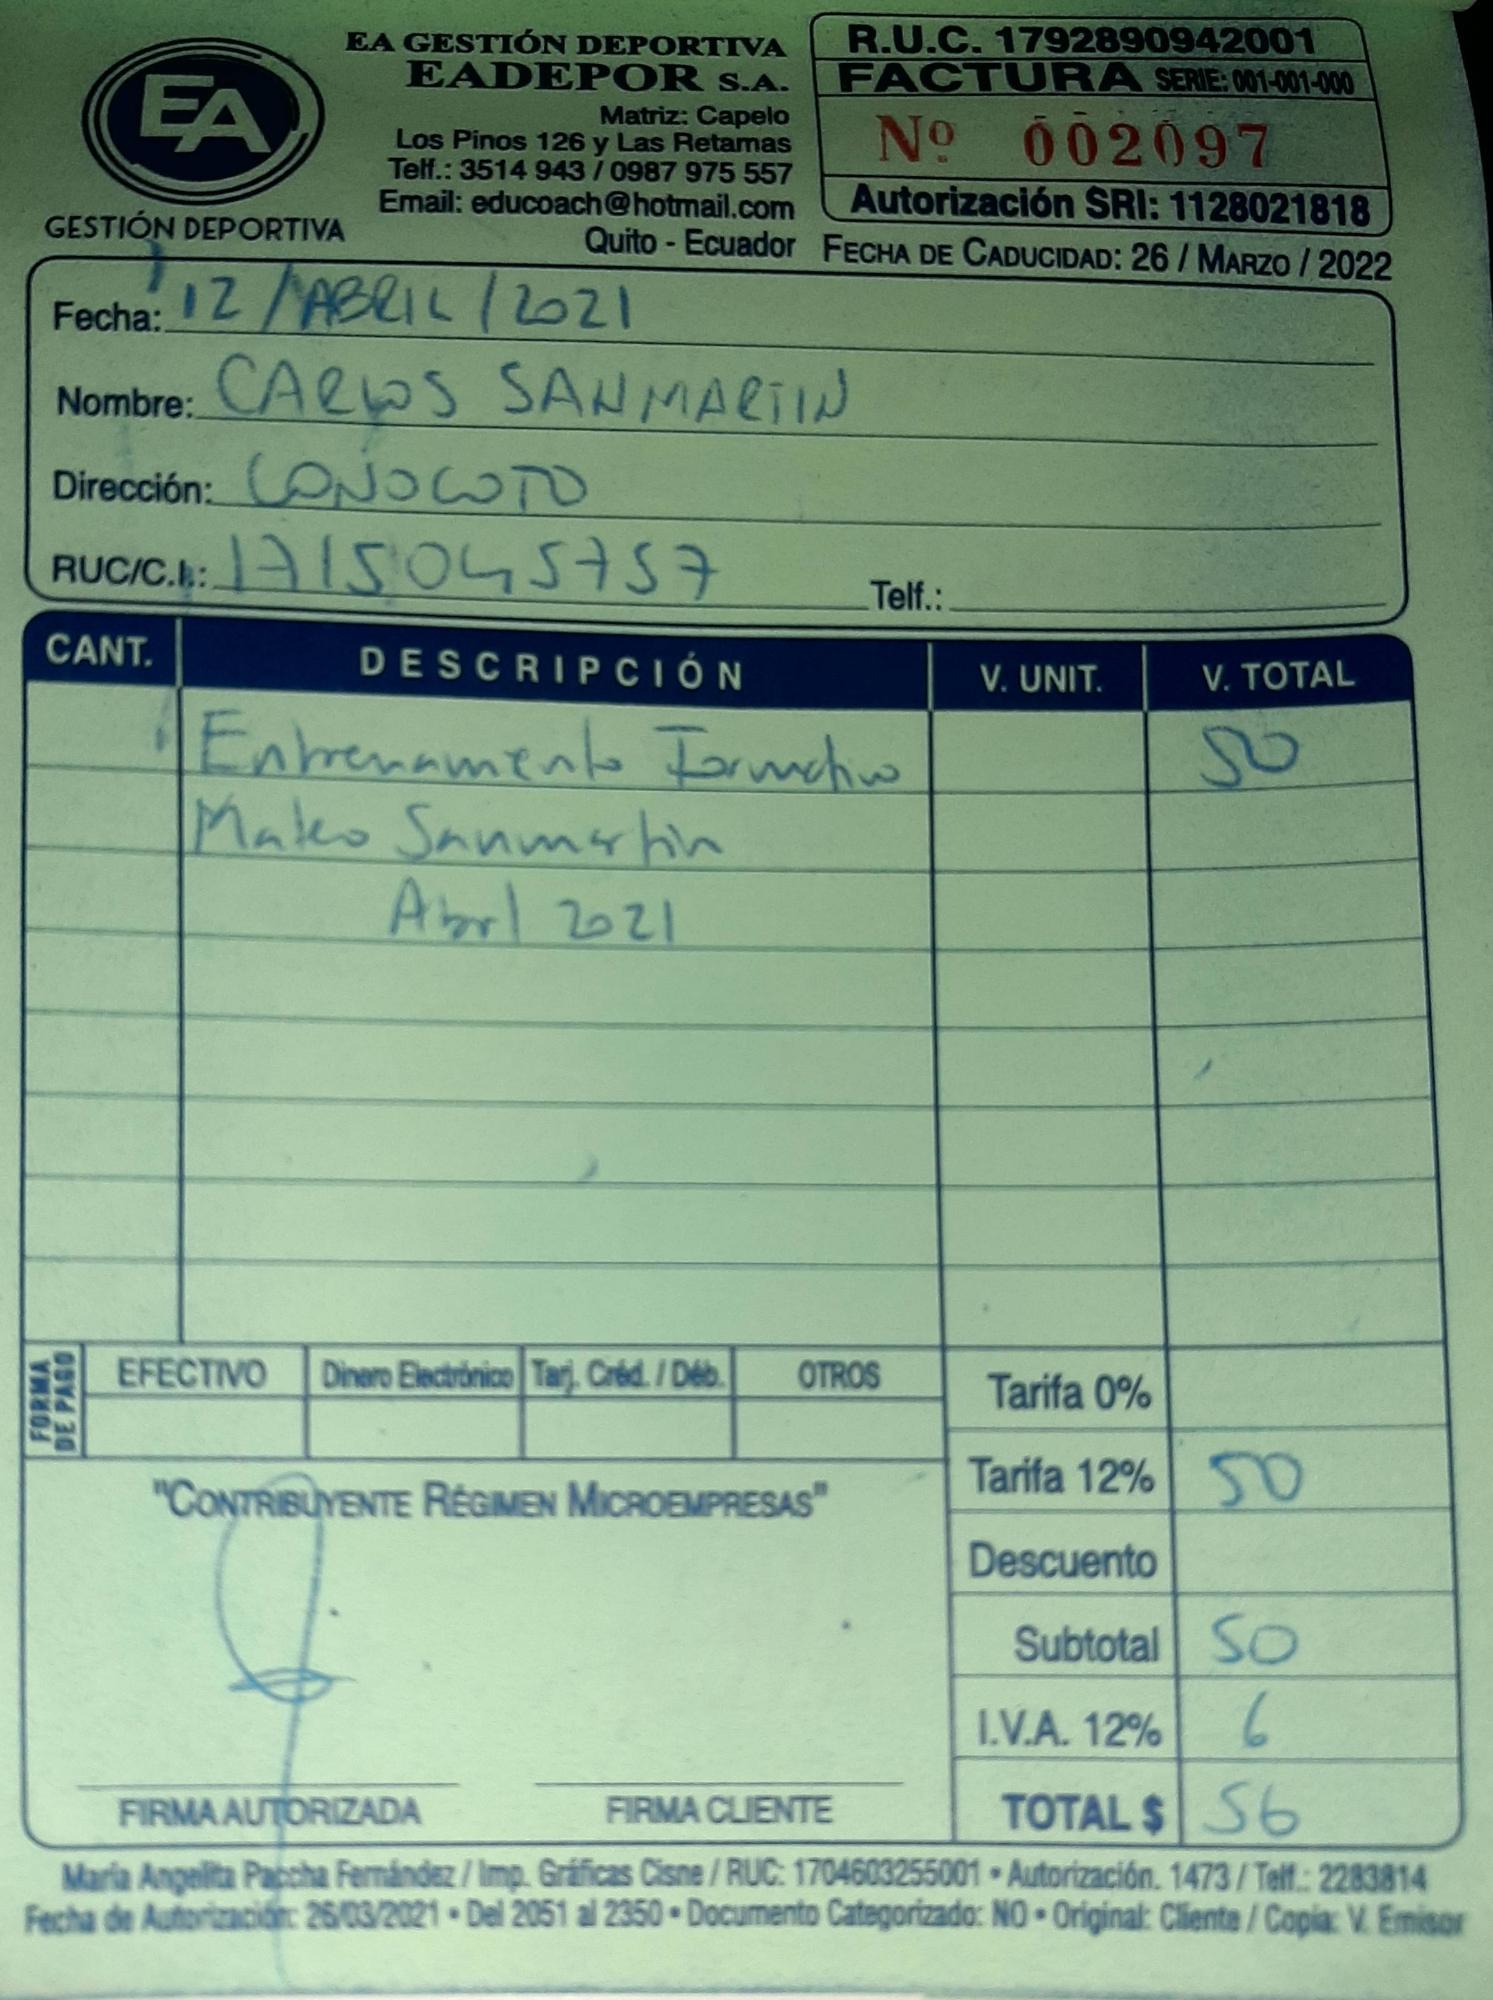 EA
GESTIÓN DEPORTIVA
EA GESTIÓN DEPORTIVA
EADEPOR S.A.
Matriz: Capelo
Los Pinos 126 y Las Retamas
Telf.: 3514 943 / 0987 975 557
Email: educoach@hotmail.com
Quito - Ecuador
R.U.C. 1792890942001
FACTURA SERIE: 001-001-000
Nº 002097
Autorización SRI: 1128021818
FECHA DE CADUCIDAD: 26 / MARZO / 2022
Fecha: 12/ABRIL/2021
Nombre: CARLOS SANMARTIN
Dirección: CONOCOTO
RUC/C.I.: 1715045757 Telf.:
CANT. DESCRIPCIÓN V. UNIT. V. TOTAL
Entrenamiento Formativo 50
Mateo Sanmartin
Abril 2021
FORMA DE PAGO EFECTIVO Dinero Electrónico Tarj. Créd. / Déb. OTROS
Tarifa 0%
Tarifa 12% 50
Descuento
Subtotal 50
I.V.A. 12% 6
TOTAL $ 56
"CONTRIBUYENTE RÉGIMEN MICROEMPRESAS"
FIRMA AUTORIZADA FIRMA CLIENTE
María Angelita Paccha Fernández / Imp. Gráficas Cisne / RUC: 1704603255001 • Autorización. 1473 / Telf.: 2283814
Fecha de Autorización: 26/03/2021 • Del 2051 al 2350 • Documento Categorizado: NO • Original: Cliente / Copia: V. Emisor